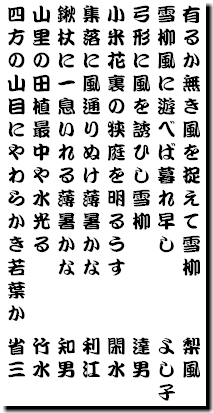 有るか無き風を捉えて雪柳 梨風
雪柳風に遊べば暮れ早し よし子
弓形に風を誘ひし雪柳 達男
小米花裏の狭庭を明るうす 閑水
集落に風通りぬけ薄暑かな 利江
鍬杖に一息いれる薄暑かな 知男
山里の田植最中や水光る 竹水
四方の山目にやわらかき若葉か 省三